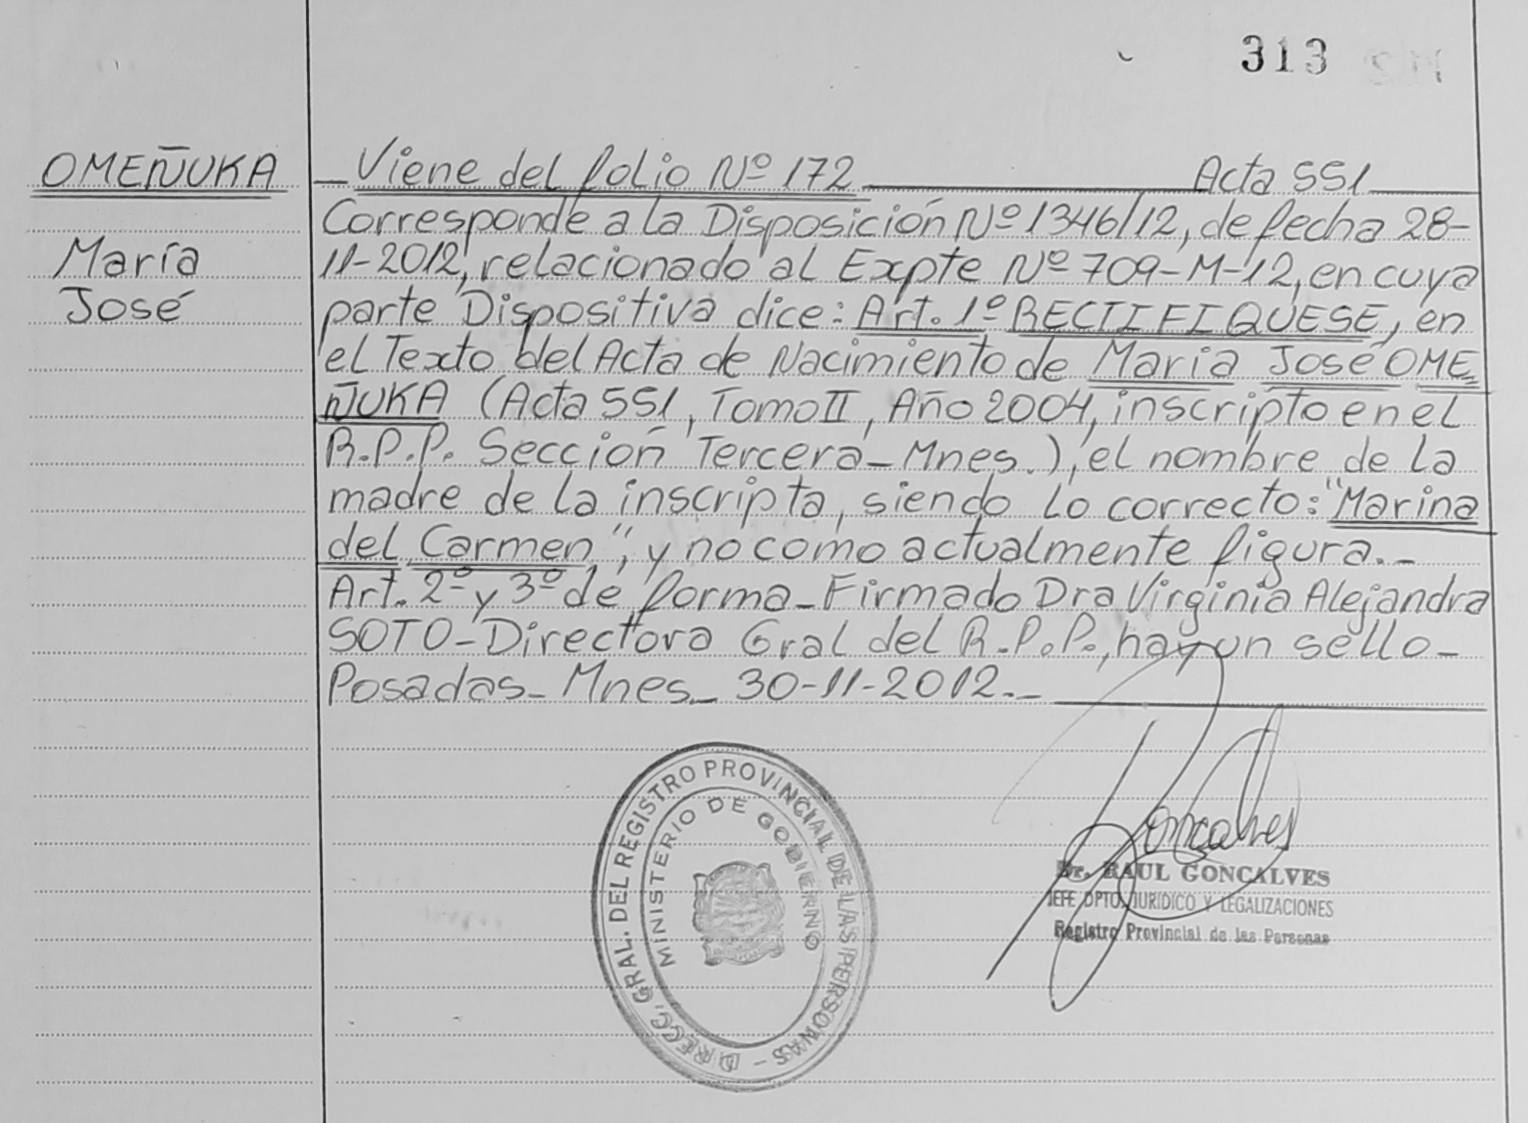 313
OMEÑUKA
María
José
Viene del folio Nº 172 Acta 551
Corresponde a la Disposición Nº 1346/12, de fecha 28-
11-2012, relacionado al Expte Nº 709-M-12, en cuya
parte Dispositiva dice: Art. 1º RECTIFIQUESE, en
el Texto del Acta de Nacimiento de María José OME
ÑUKA (Acta 551, Tomo II, Año 2004, inscripto en el
R.P.P. Sección Tercera-Mnes.), el nombre de la
madre de la inscripta, siendo lo correcto: "Marina
del Carmen", y no como actualmente figura.-
Art. 2º y 3º de forma-Firmado Dra Virginia Alejandra
SOTO-Directora Gral del R.P.P., hay un sello-
Posadas-Mnes- 30-11-2012.-
DIRECC. GRAL. DEL REGISTRO PROVINCIAL DE LAS PERSONAS -
MINISTERIO DE GOBIERNO
Goncalves
Dr. RAUL GONCALVES
JEFE DPTO. JURIDICO Y LEGALIZACIONES
Registro Provincial de las Personas